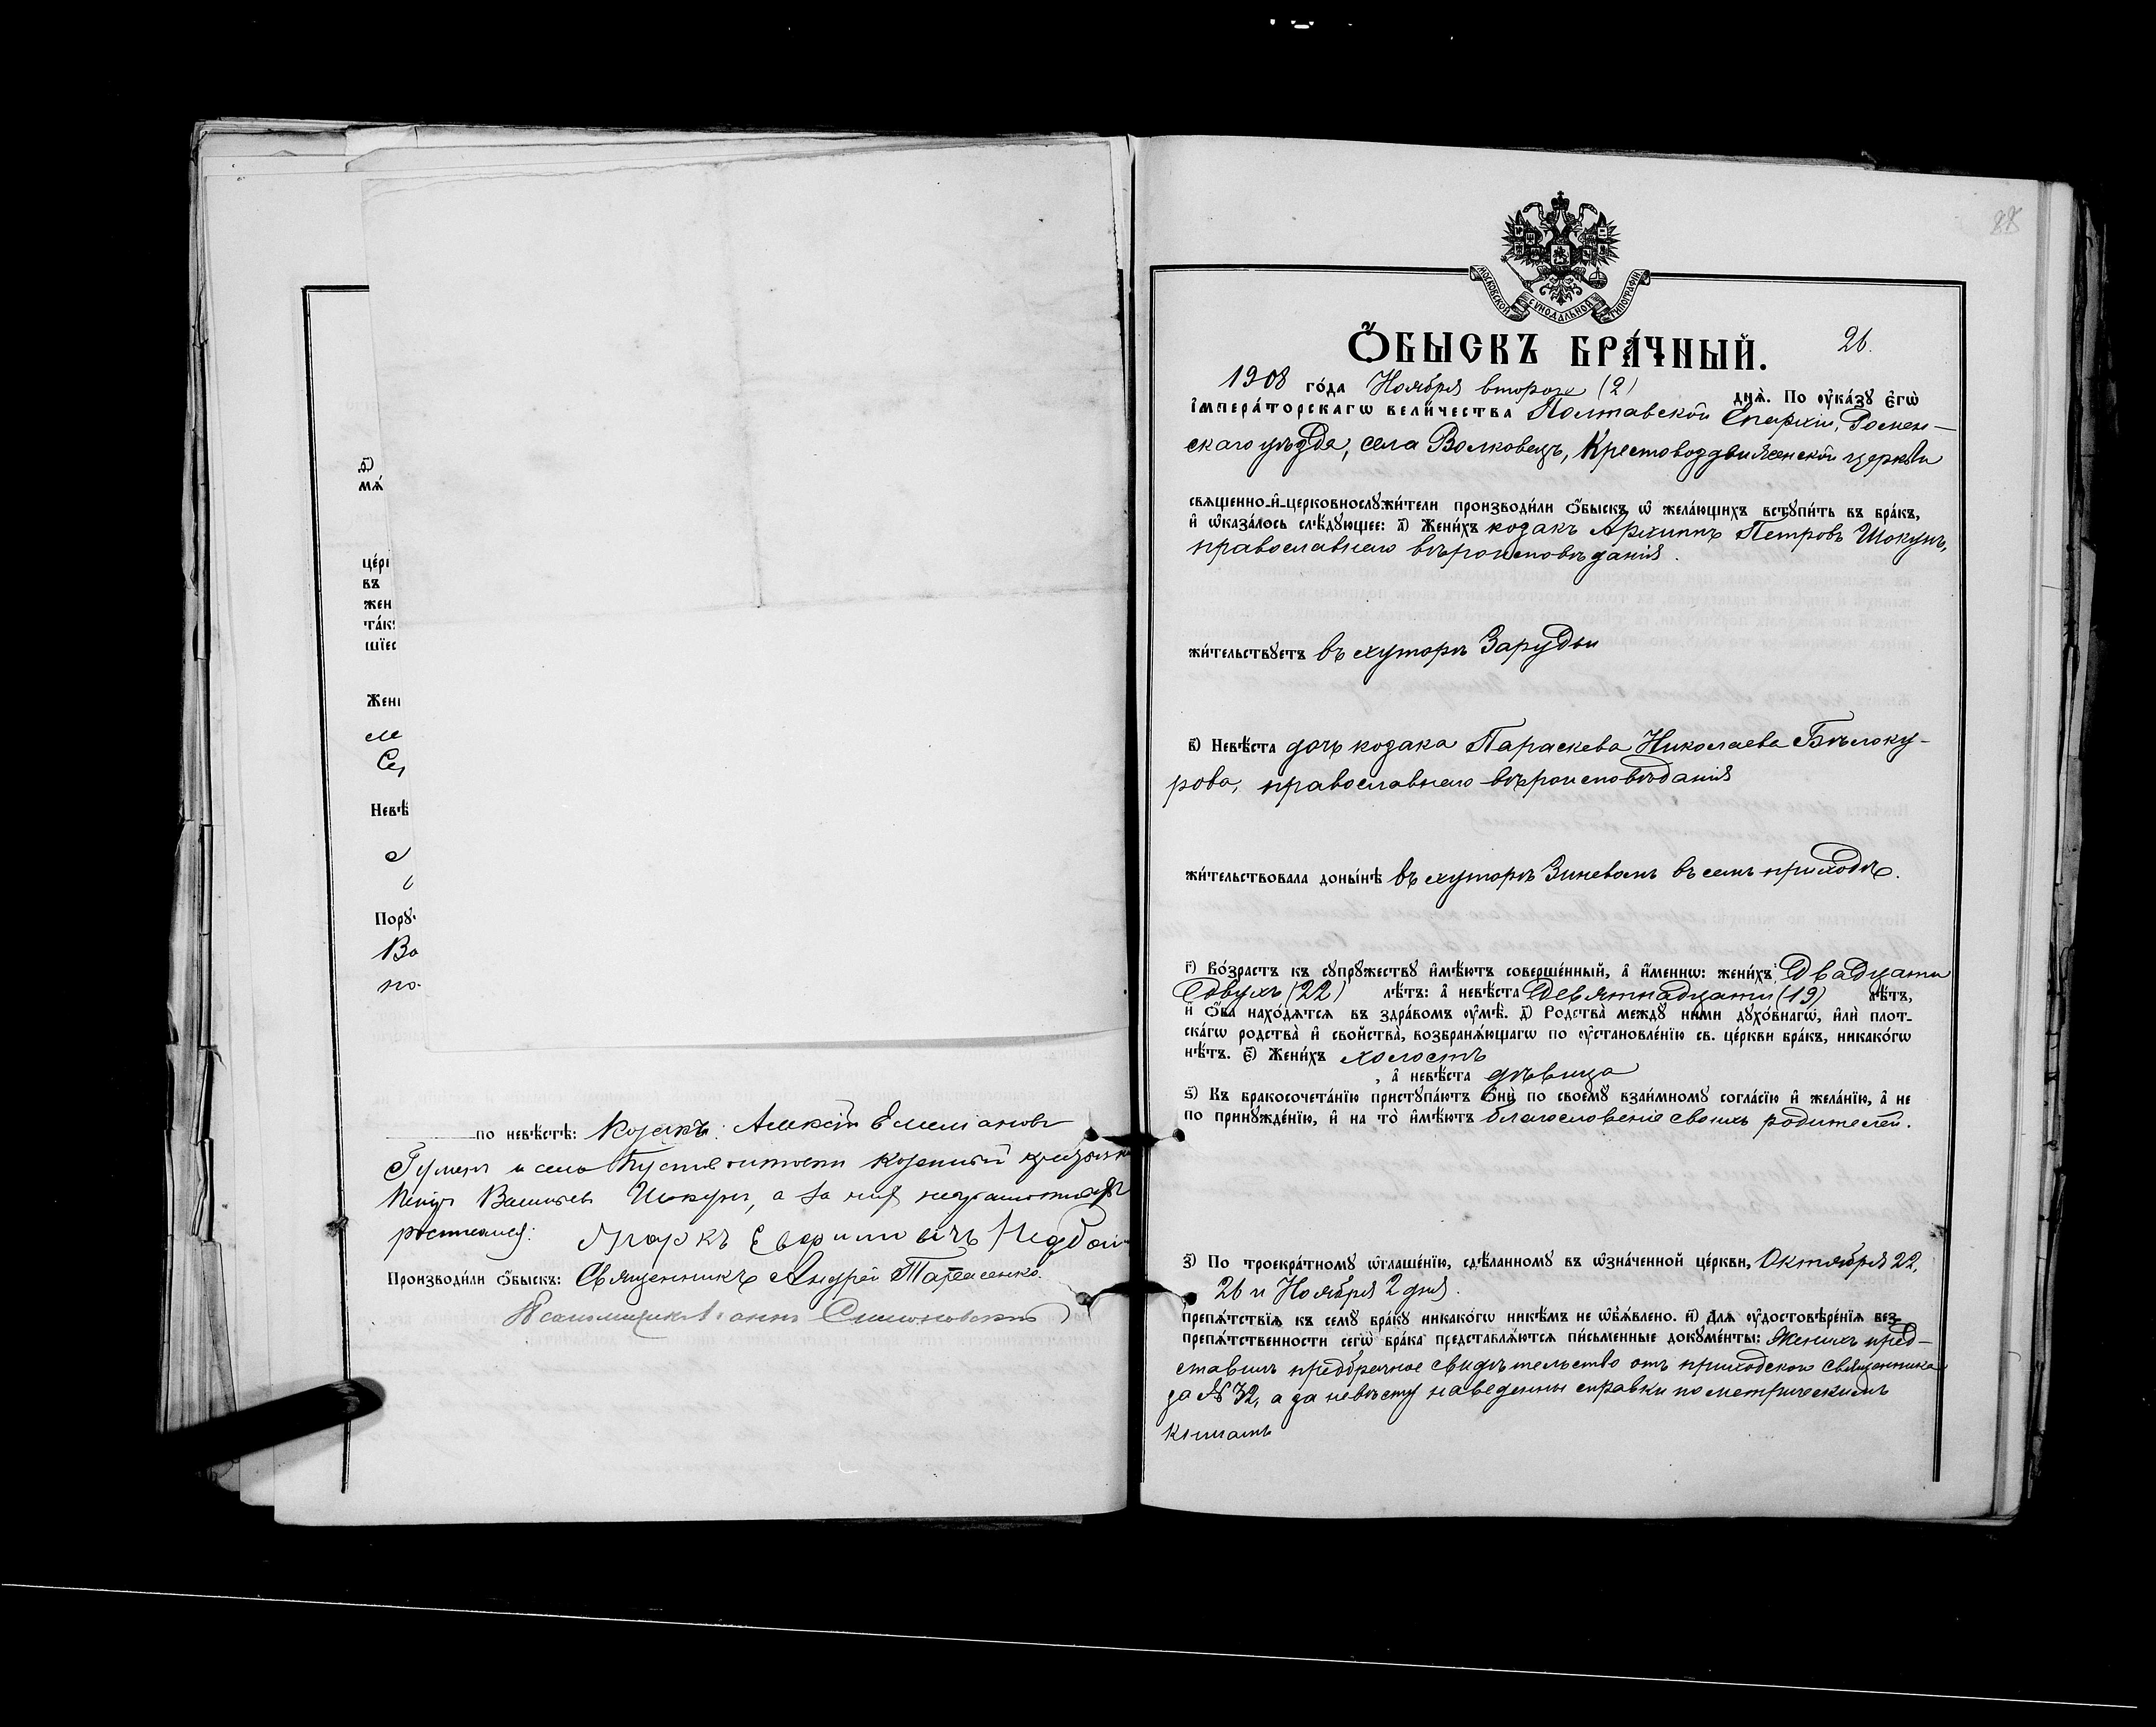 д҃)
мѧ́
це́рк
въ
жен
та́к
шїес
Жени
ме
Се
Невѣ́
Порꙋ
Во
по
по невѣ́стѣ: Козакъ Алексѣй Емелiановъ
Гумен и села
Петръ Васильев Шокунъ, а за них неграмотных
росписался: Маркъ
Производи́ли ѻ҆́быскъ: Священникъ Андрей Тарасенко.
Псаломщикъ Іоаннъ Симоновскій
88
МОСКОВСКОЙ СѴНОДАЛЬНОЙ ТИПОГРАФІИ
Ѻ҆́БЫСКЪ БРА́ЧНЫЙ.
26.
1908 го́да Ноября второго (2) днѧ̀. По ᲂу҆ка́зꙋ Є҆гѡ̀
і҆мпера́торскагѡ вели́чества Полтавской Епархіи, Ромен-
скаго уѣзда, села Волковецъ, Крестовоздвиженской церкви
свѧще́нно-и҆-церковнослꙋжи́тели производи́ли ѻ҆́быскъ ѡ҆ жела́ющихъ встꙋпи́ть въ бра́къ,
и҆ ѡ҆каза́лось слѣ́дꙋющее: а҃) Жени́хъ козакъ Архиппъ Петровъ Шокунъ,
православнаго вѣроисповѣданія.
жи́тельствꙋетъ въ хуторѣ Зарудьи
в҃) Невѣ́ста дочь козака Параскева Николаева Бѣлоку-
рова, православнаго вѣроисповѣданія
жи́тельствовала доны́нѣ въ хуторѣ Зиневомъ въ семъ приходѣ.
г҃) Во́зрастъ къ сꙋпрꙋ́жествꙋ и҆мѣ́ютъ соверше́нный, а҆ и҆́меннѡ: жени́хъ Двадцати
двухъ (22) лѣ́тъ: а҆ невѣ́ста Девятнадцати (19) лѣ́тъ,
и҆ ѻ҆́ба нахо́дѧтсѧ въ здра́вомъ ᲂу҆мѣ̀. д҃) Родства̀ междꙋ̀ ни́ми дꙋхо́внагѡ, и҆лѝ пло́т-
скагѡ родства̀ и҆ свойства̀, возбранѧ́ющагѡ по ᲂу҆становле́нїю св. це́ркви бра́къ, никако́гѡ
нѣ́тъ. є҃) Жени́хъ холостъ
, а҆ невѣ́ста дѣвица
ѕ҃) Къ бракосочета́нїю пристꙋпа́ютъ Ѻ҆нѝ по своемꙋ̀ взаи́мномꙋ согла́сїю и҆ жела́нїю, а҆ не
по принꙋжде́нїю, и҆ на то̀ и҆мѣ́ютъ благословеніе своихъ родителей.
з҃) По троекра́тномꙋ ѡ҆глаше́нїю, сдѣ́ланномꙋ въ ѡ҆зна́ченной це́ркви, Октября 22,
26 и Ноября 2 дня.
препѧ́тствїѧ къ семꙋ̀ бра́кꙋ никако́гѡ никѣ́мъ не ѡ҆б̾ѧ́влено. и҃) Длѧ̀ ᲂу҆достовѣре́нїѧ без-
препѧ́тственности сегѡ̀ бра́ка представлѧ́ютсѧ пи́сьменные докꙋме́нты: Женихъ пред-
ставилъ предбрачное свидѣтельство отъ приходскаго священника
за № 32, а за невѣсту наведены справки по метрическимъ
книгамъ